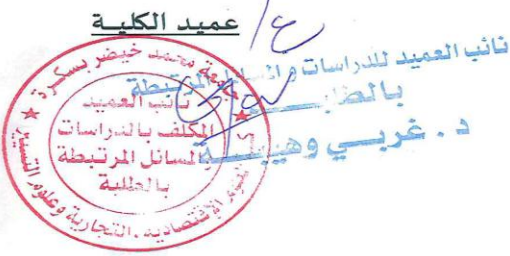 عميد الكليــة
ع/
نائب العميد للدراسات والمسائل المرتبطة
بالطلبــــــة
د. غربــي وهيبــــة
جامعة محمد خيضر بسكرة
نائب العميد
المكلف بالدراسات
والمسائل المرتبطة
بالطلبة
الإقتصادية. التجارية وعلوم التسيير